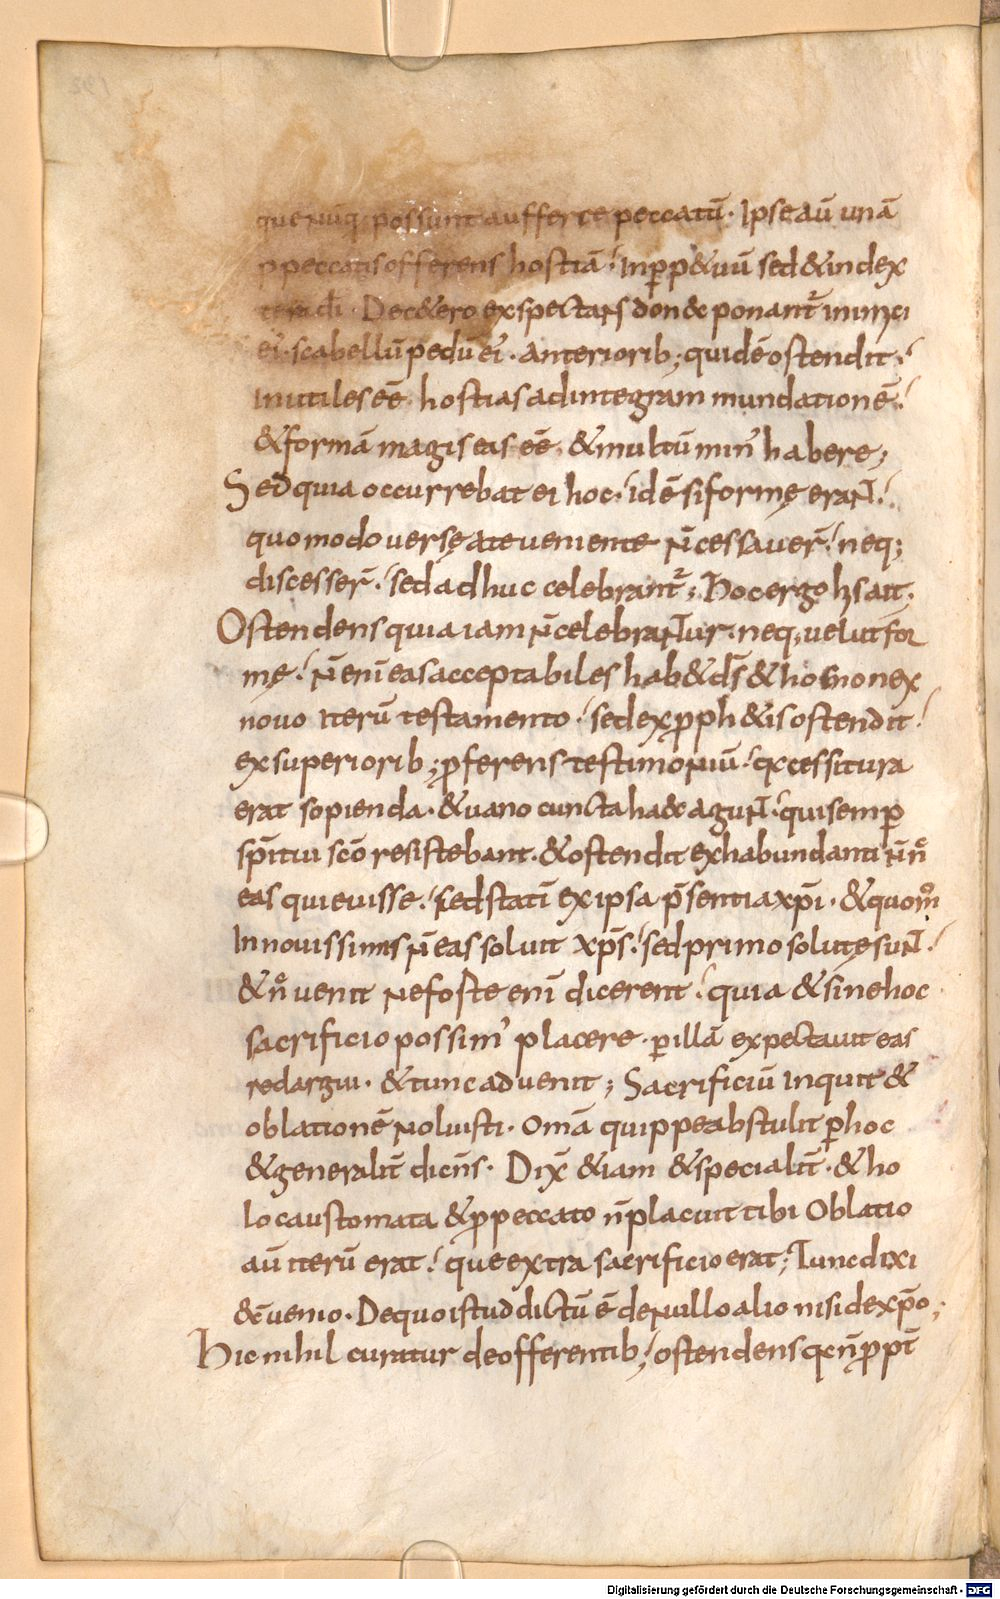 que nuq; possunt aufferre peccatū. Ipse aū unā
p peccatis offerens hostiā. Inpp&uū sed& index
tera dī. Dec&ero exspectans donec ponant inimici
ei scabellū pedū ei. Anteriorib; quidē ostendit.
Inutiles eē hostias ad integram mundationē.
&formā magis eis eē. &multū min habere;
Sed quia occurrebat ei hoc. idē si formę erant.
quomodo uersę ate ueniente n̄ cessauer̄. neq;
discesser̄. sed adhuc celebrant; Hoc ergo hsait.
Ostendens quia iam n̄ celebrantur. neq; uelut for
mę. n̄ enī eas acceptabiles hab& ds̄ & hoc non ex
nouo iterū testamento. sed exproph&is ostendit.
ex superiorib; pferens testimoniū. qd cessitura
erat sopienda. &uano cuncta hac agunt. qui semp
spītui scō resistebant. &ostendit exhabundanti n̄ n̄c
eas quieuisse. sed statī ex ipsa psentia xpī. &quom̊
In nouissimis n̄ eas soluit xps̄. sed primo solutę sunt.
&n̄c uenit Ne foste enī dicerent. quia &sine hoc
sacrificio possim placere. p illā expectauit eas
redargui. &tunc aduenit; Sacrificiū inquit &
oblationē noluisti. Omā quippe abstulit p hoc
&generalit̄ dicens. Dix̄ &iam &specialit̄. &ho
locaustomata &ppeccato n̄ placuit tibi Oblatio
aū iterū erat. que extra sacrificio erat; Tunc dixi
&cē uenio. De quo istud dictū ē de nullo alio nisi de xpō;
Hic nihil curatur de offerentib; ostendens qd n̄ pp̄t
Digitalisierung gefördert durch die Deutsche Forschungsgemeinschaft - DFG